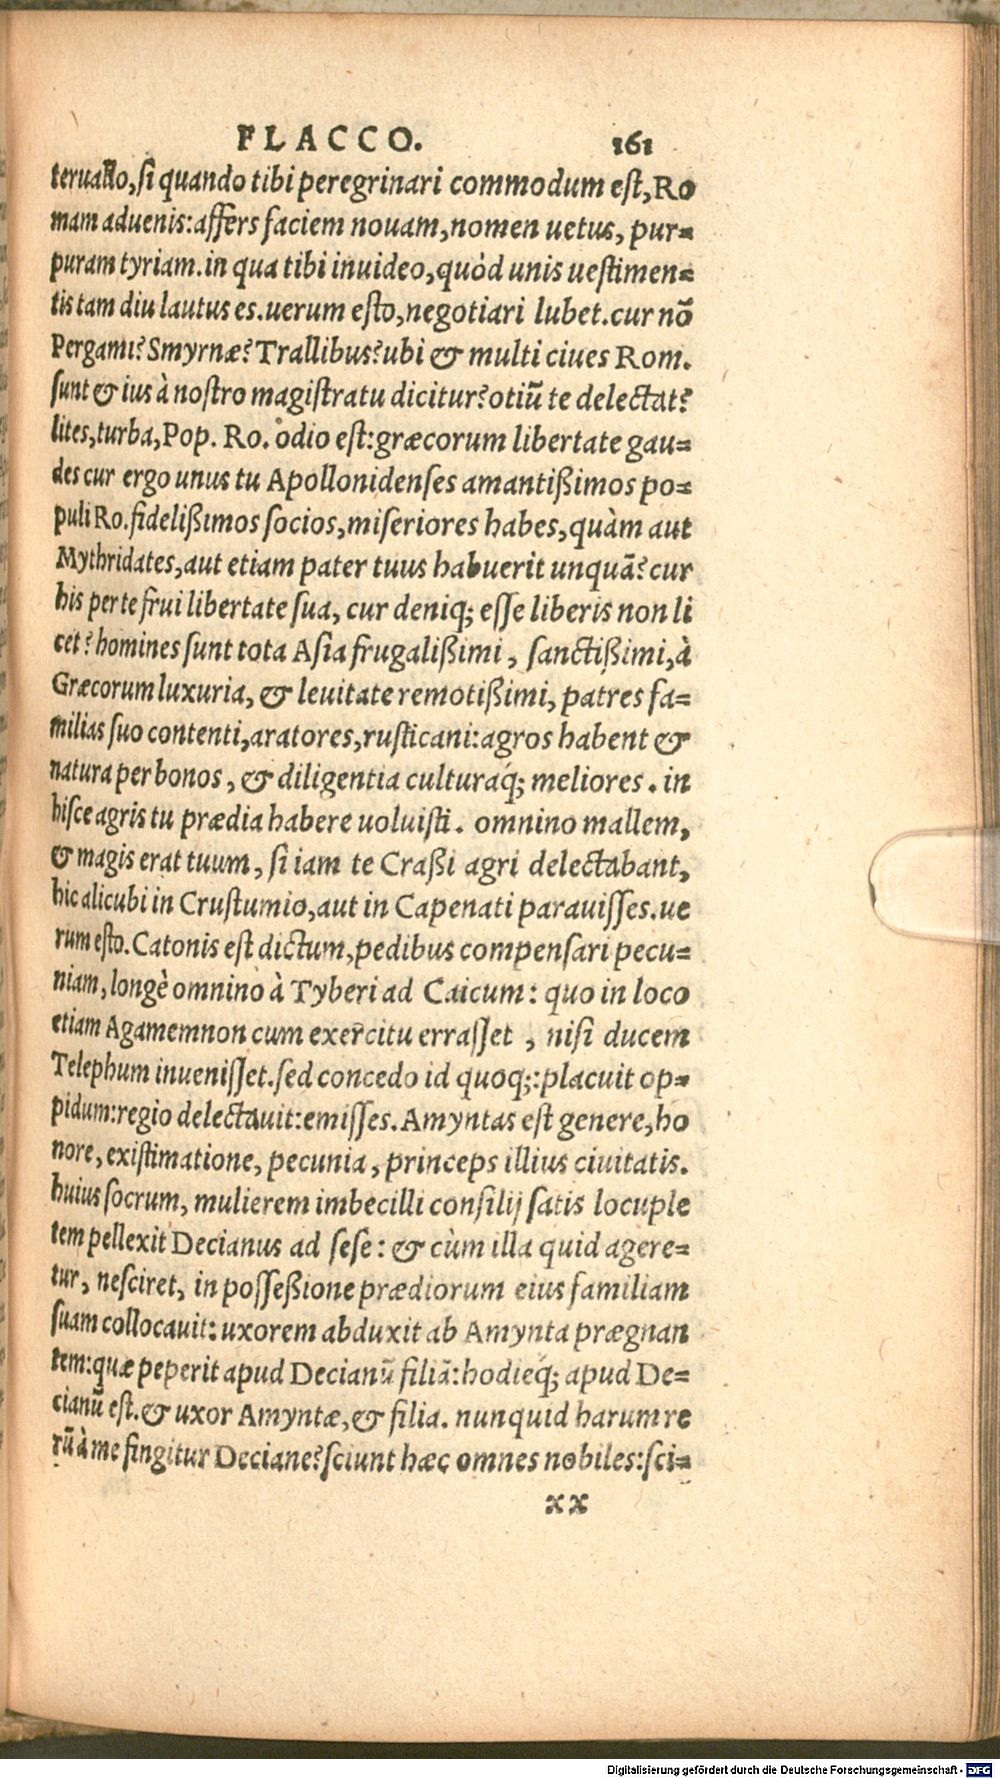 FLACCO. 161
teruallo, si quando tibi peregrinari commodum est, Ro
mam aduenis: affers faciem nouam, nomen uetus, pur=
puram tyriam. in qua tibi inuideo, quòd unis uestimen=
tis tam diu lautus es. uerum esto, negotiari lubet. cur nō
Pergami? Smyrnæ? Trallibus? ubi & multi ciues Rom.
sunt & ius à nostro magistratu dicitur? otiū te delectat?
lites, turba, Pop. Ro. odio est: græcorum libertate gau=
des cur ergo unus tu Apollonidenses amantißimos po=
puli Ro. fidelißimos socios, miseriores habes, quàm aut
Mythridates, aut etiam pater tuus habuerit unquā? cur
his per te frui libertate sua, cur deniq; esse liberis non li
cet? homines sunt tota Asia frugalißimi, sanctißimi, à
Græcorum luxuria, & leuitate remotißimi, patres fa=
milias suo contenti, aratores, rusticani: agros habent &
natura perbonos, & diligentia culturaq́; meliores. in
hisce agris tu prædia habere uoluisti. omnino mallem,
& magis erat tuum, si iam te Craßi agri delectabant,
hic alicubi in Crustumio, aut in Capenati parauisses. ue
rum esto. Catonis est dictum, pedibus compensari pecu=
niam, longè omnino à Tyberi ad Caicum: quo in loco
etiam Agamemnon cum exercitu errasset, nisi ducem
Telephum inuenisset. sed concedo id quoq;: placuit op=
pidum: regio delectauit: emisses. Amyntas est genere, ho
nore, existimatione, pecunia, princeps illius ciuitatis.
huius socrum, mulierem imbecilli consilij satis locuple
tem pellexit Decianus ad sese: & cùm illa quid agere=
tur, nesciret, in possessione prædiorum eius familiam
suam collocauit: uxorem abduxit ab Amynta prægnan
tem: quæ peperit apud Decianū filiā: hodieq́; apud De=
cianū est. & uxor Amyntæ, & filia. nunquid harum re
rū à me fingitur Deciane? sciunt hæc omnes nobiles: sci=
xx
Digitalisierung gefördert durch die Deutsche Forschungsgemeinschaft - DFG